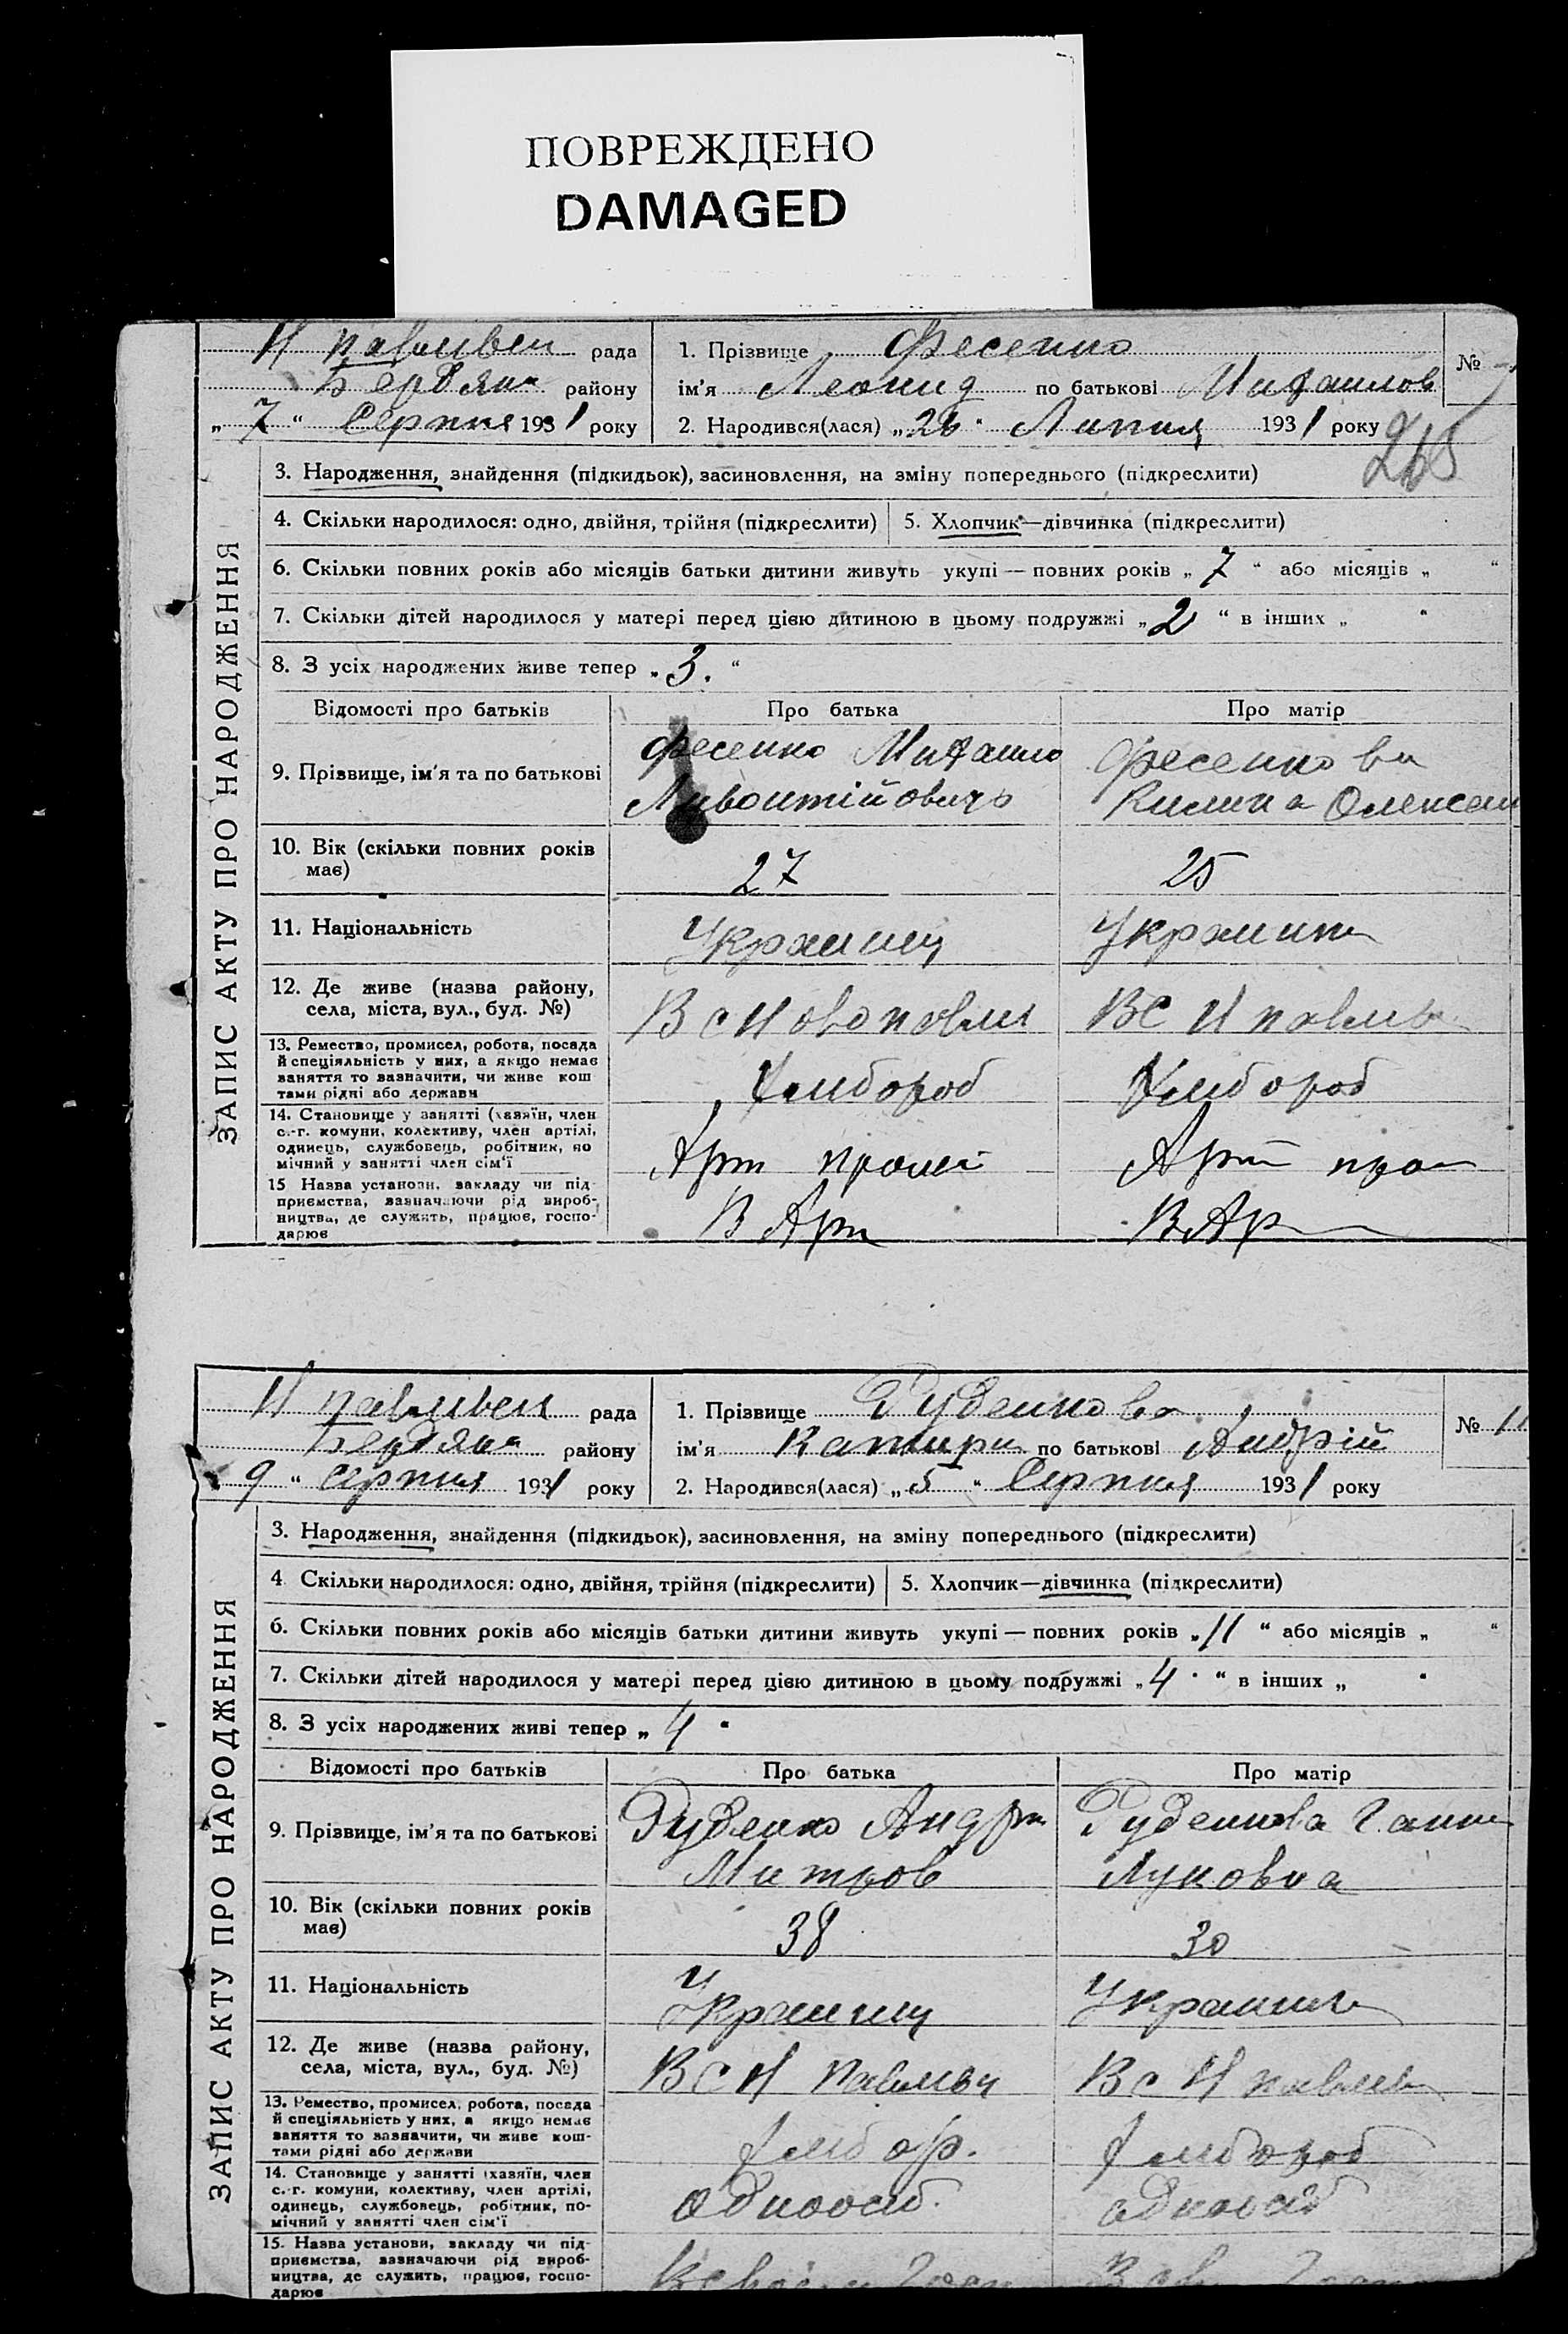 ПОВРЕЖДЕНО
DAMAGED
Н рада
Бердян району
„ 7 “ Серпня 1931 року
1. Прізвище Фесенко
ім'я Леонид по батькові Михайлов
2. Народився(лася) „ 26 “ Липня 1931 року
№
265
ЗАПИС АКТУ ПРО НАРОДЖЕННЯ
3. Народження, знайдення (підкидьок), засиновлення, на зміну попереднього (підкреслити)
4. Скільки народилося: одно, двійня, трійня (підкреслити) 5. Хлопчик—дівчинка (підкреслити)
6. Скільки повних років або місяців батьки дитини живуть укупі — повних років „ 7 “ або місяців „ “
7. Скільки дітей народилося у матері перед цією дитиною в цьому подружжі „ 2 “ в інших „ “
8. З усіх народжених живе тепер „ 3. “
Відомості про батьків Про батька Про матір
9. Прізвище, ім'я та по батькові
Фесенко Михайло
Фесенкова
Килина Олексан
10. Вік (скільки повних років
має)
27 25
11. Національність
12. Де живе (назва району,
села, міста, вул., буд. №)
В с Новопавли В с Н павлив
13. Ремество, промисел, робота, посада
й спеціяльність у них, а якщо немає
заняття то зазначити, чи живе кош
тами рідні або держави
Хлибороб Хлибороб
14. Становище у занятті (хазяїн, член
с.-г. комуни, колективу, член артілі,
одинець, службовець, робітник, по
мічний у занятті член сім'ї
Арт Арт
15 Назва установи, закладу чи під-
приємства, зазначаючи рід вироб-
ництва, де служить, працює, госпо-
дарює
В Арт В Ар
Н рада
Бердян району
9 “ Серпня 1931 року
1. Прізвище Руденкова
ім'я Катирн по батькові Андрій
2. Народився(лася) „ 5 “ Серпня 1931 року
№ 11
ЗАПИС АКТУ ПРО НАРОДЖЕННЯ
3. Народження, знайдення (підкидьок), засиновлення, на зміну попереднього (підкреслити)
4 Скільки народилося: одно, двійня, трійня (підкреслити) 5. Хлопчик—дівчинка (підкреслити)
6. Скільки повних років або місяців батьки дитини живуть укупі — повних років „ 11 “ або місяців „ “
7. Скільки дітей народилося у матері перед цією дитиною в цьому подружжі „ 4 “ в інших „ “
8. З усіх народжених живі тепер „ 4 “
Відомості про батьків Про батька Про матір
9. Прізвище, ім'я та по батькові
Руденко Андри
Митров
Руденкова Ганна
Луковна
10. Вік (скільки повних років
має)
38 30
11. Національність
12. Де живе (назва району,
села, міста, вул., буд. №)
В с Н В с Н
13. Ремество, промисел, робота, посада
й спеціяльність у них, а якщо немає
заняття то зазначити, чи живе кош-
тами рідні або держави
Хлибор. Хлибороб
14. Становище у занятті (хазяїн, член
с.-г. комуни, колективу, член артілі,
одинець, службовець, робітник, по-
мічний у занятті член сім'ї
Одноосіб. Одноосіб
15. Назва установи, закладу чи під-
приємства, зазначаючи рід вироб-
ництва, де служить, працює, госпо-
дарює